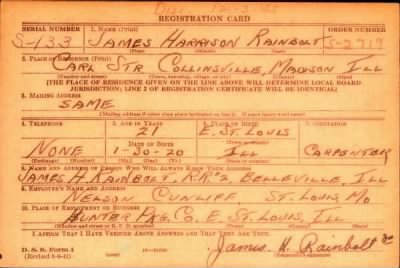 REGISTRATION CARD
SERIAL NUMBER 1. NAME (Print) ORDER NUMBER
S-133 JAMES HARRISON RAINBOLT S-2719
(First) (Middle) (Last)
2. PLACE OF RESIDENCE (Print)
CARL STR COLLINSVILLE, MADISON ILL
(Number and street) (Town, township, village, or city) (County) (State)
[THE PLACE OF RESIDENCE GIVEN ON THE LINE ABOVE WILL DETERMINE LOCAL BOARD
JURISDICTION; LINE 2 OF REGISTRATION CERTIFICATE WILL BE IDENTICAL]
3. MAILING ADDRESS
SAME
[Mailing address if other than place indicated on line 2. If same insert word same]
4. TELEPHONE 5. AGE IN YEARS 6. PLACE OF BIRTH 7. OCCUPATION
21 E. ST. LOUIS
DATE OF BIRTH
NONE 1-30-20 ILL CARPENTER
(Exchange) (Number) (Mo.) (Day) (Yr.) (State or country)
8. NAME AND ADDRESS OF PERSON WHO WILL ALWAYS KNOW YOUR ADDRESS
JAMES H. RAINBOLT, R.R#2, BELLEVILLE, ILL
9. EMPLOYER'S NAME AND ADDRESS
NELSON CUNLIFF, ST. LOUIS, MO
10. PLACE OF EMPLOYMENT OR BUSINESS
HUNTER PKG. CO. E. ST. LOUIS, ILL
(Number and street or R. F. D. number) (Town) (County) (State)
I AFFIRM THAT I HAVE VERIFIED ABOVE ANSWERS AND THAT THEY ARE TRUE.
D. S. S. Form 1
(Revised 5-6-41)
James H. Rainbolt